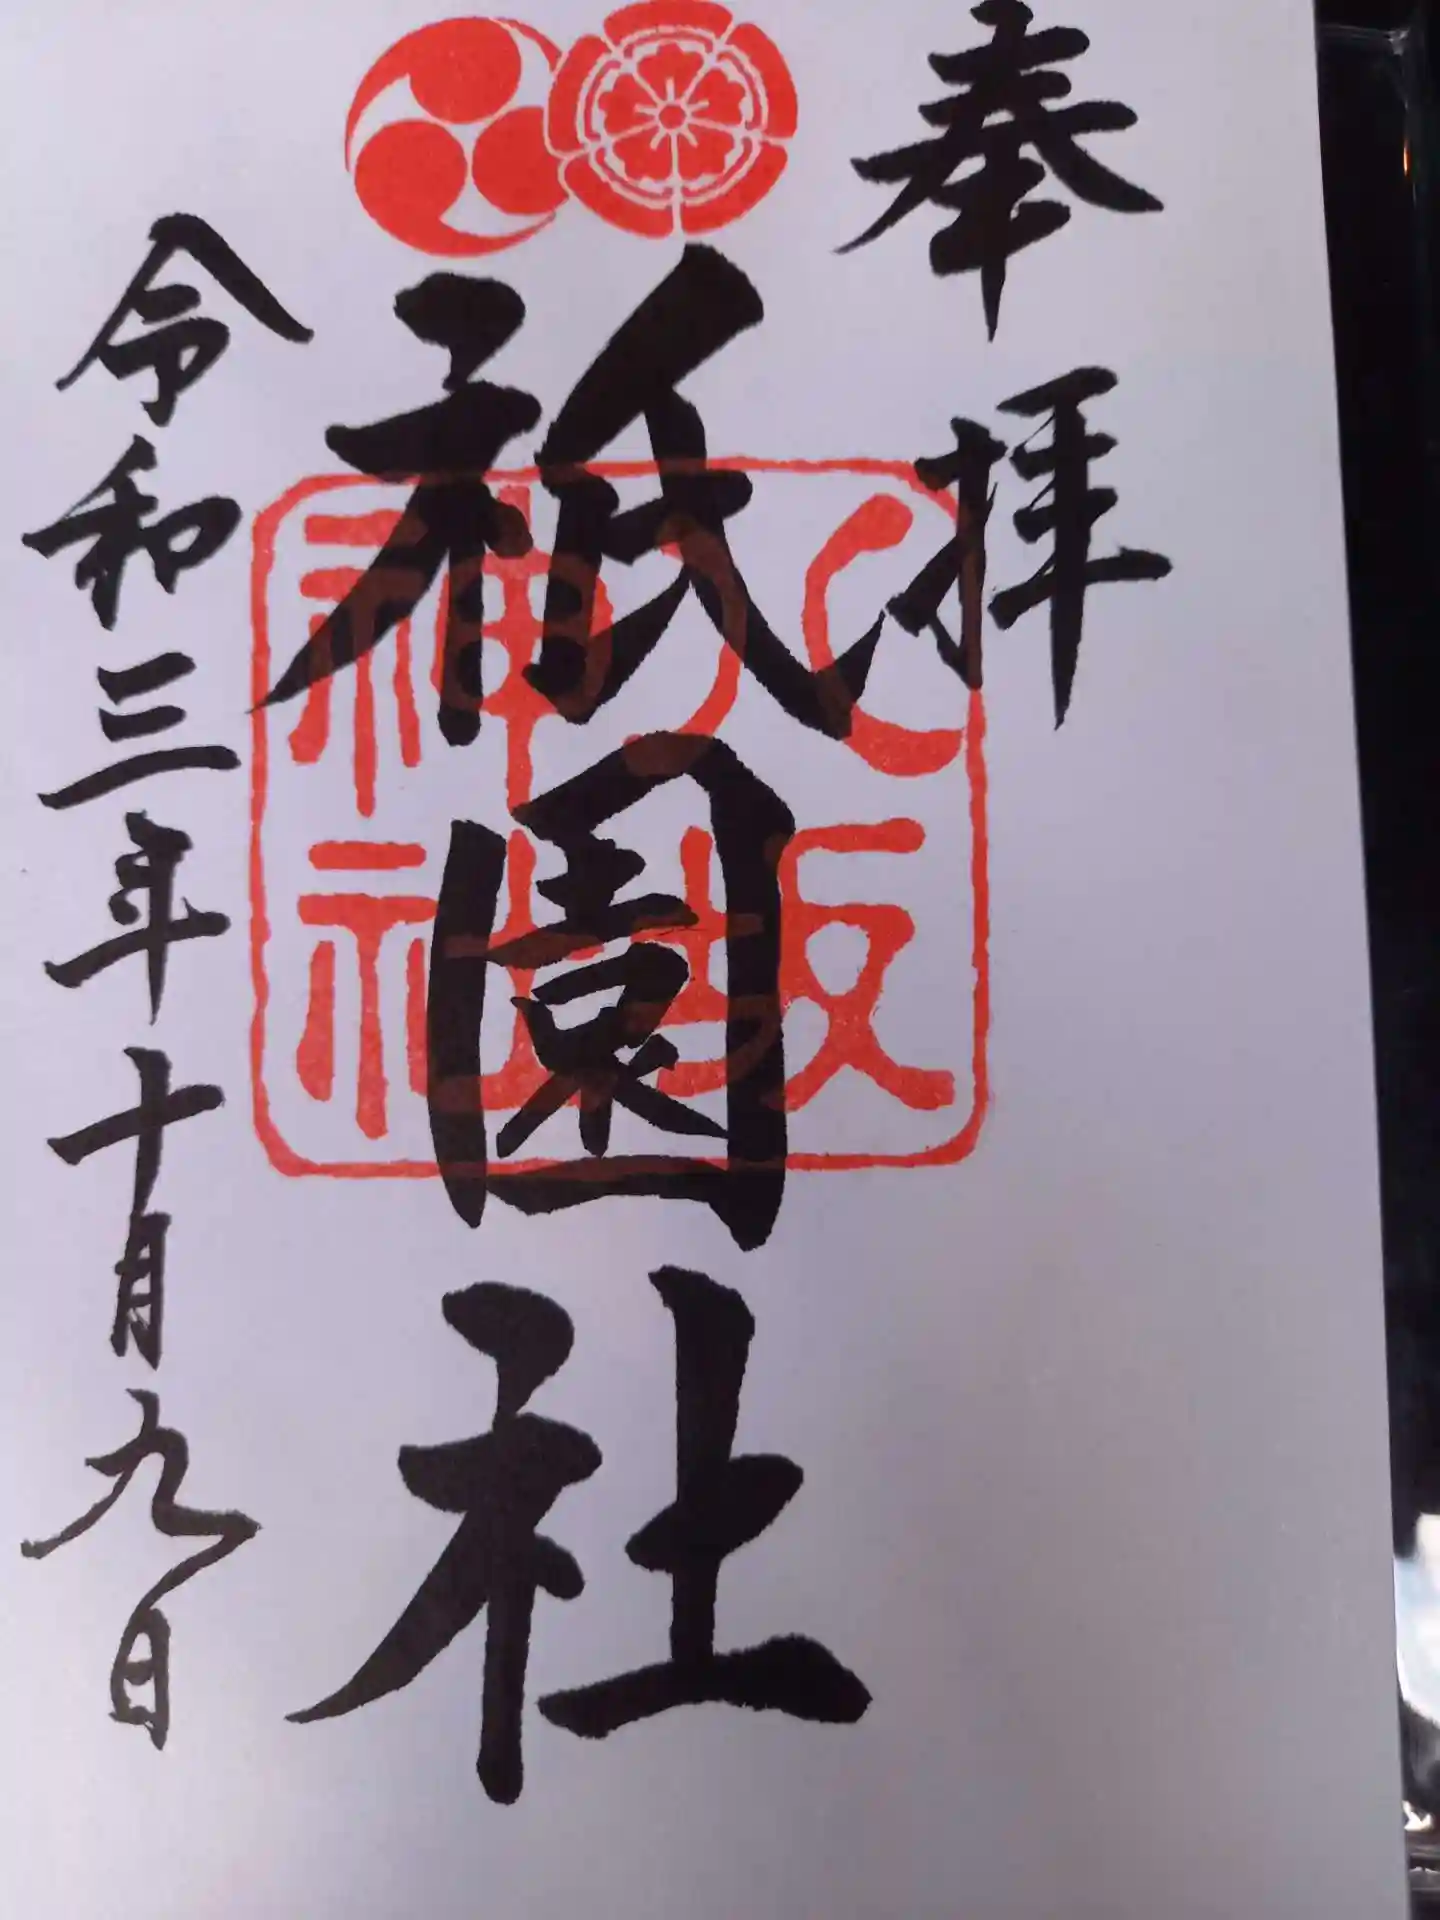 奉拝
祇園社
八坂神社
令和三年十月九日